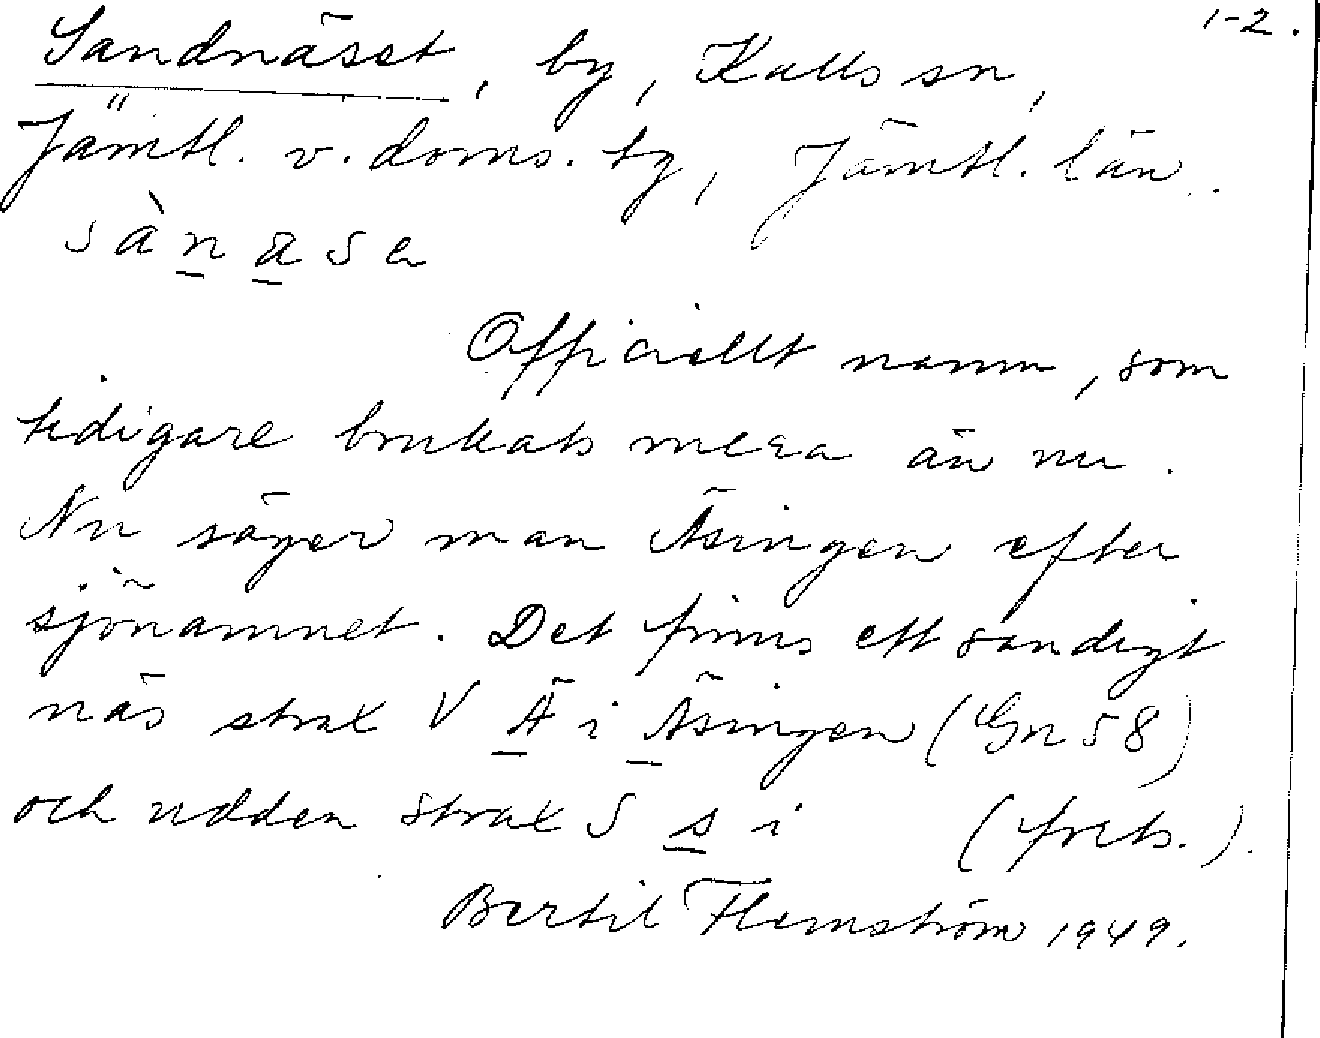 1-2.
Sandnäset, by, Kalls sn,
Jämtl. v. doms. tg, Jämtl. län.
sànasa
Officiellt namn, som
tidigare brukats mera än nu.
Nu säger man Äsingen efter
sjönamnet. Det finns ett sandigt
näs strax V Ä i Äsingen (Gn 58)
och udden strax S s i (forts.).
Bertil Flemström 1949.